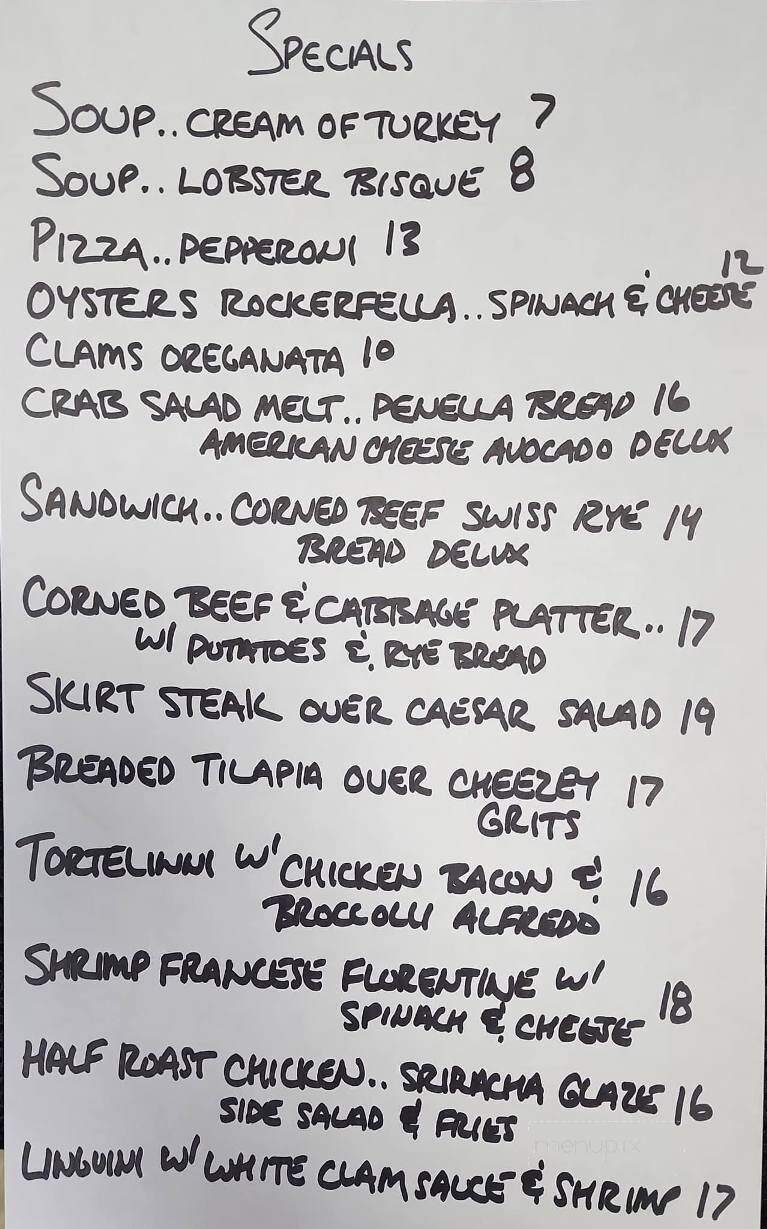 SPECIALS
SOUP.. CREAM OF TURKEY 7
SOUP.. LOBSTER BISQUE 8
PIZZA.. PEPPERONI 13
12
OYSTERS ROCKERFELLA.. SPINACH & CHEESE
CLAMS OREGANATA 10
CRAB SALAD MELT.. PENELLA BREAD 16
AMERICAN CHEESE AVOCADO DELUX
SANDWICH.. CORNED BEEF SWISS RYE 14
BREAD DELUX
CORNED BEEF & CABBAGE PLATTER.. 17
W/ POTATOES & RYE BREAD
SKIRT STEAK OVER CAESAR SALAD 19
BREADED TILAPIA OVER CHEEZEY 17
GRITS
TORTELINNI W/ CHICKEN BACON & 16
BROCCOLLI ALFREDO
SHRIMP FRANCESE FLORENTINE W/ 18
SPINACH & CHEESE
HALF ROAST CHICKEN.. SRIRACHA GLAZE 16
SIDE SALAD & FRIES
menupix
LINGUINI W/ WHITE CLAM SAUCE & SHRIMP 17